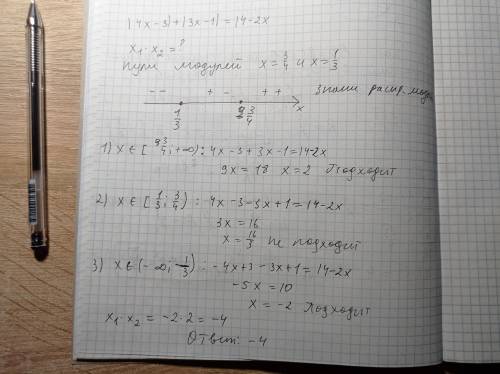 |4x-3|+|3x-1|=14-2x
x₁·x₂=?
нули модулей x=3/4 и x=1/3
- - + - + + знаки раскр. мод
1/3 3/4 x
1) x∈[3/4;+∞): 4x-3+3x-1=14-2x
9x=18 x=2 Подходит
2) x∈[1/3;3/4): 4x-3-3x+1=14-2x
3x=16
x=16/3 не подходит
3) x∈(-∞;1/3): -4x+3-3x+1=14-2x
-5x=10
x=-2 Подходит
x₁·x₂=-2·2=-4
Ответ: -4